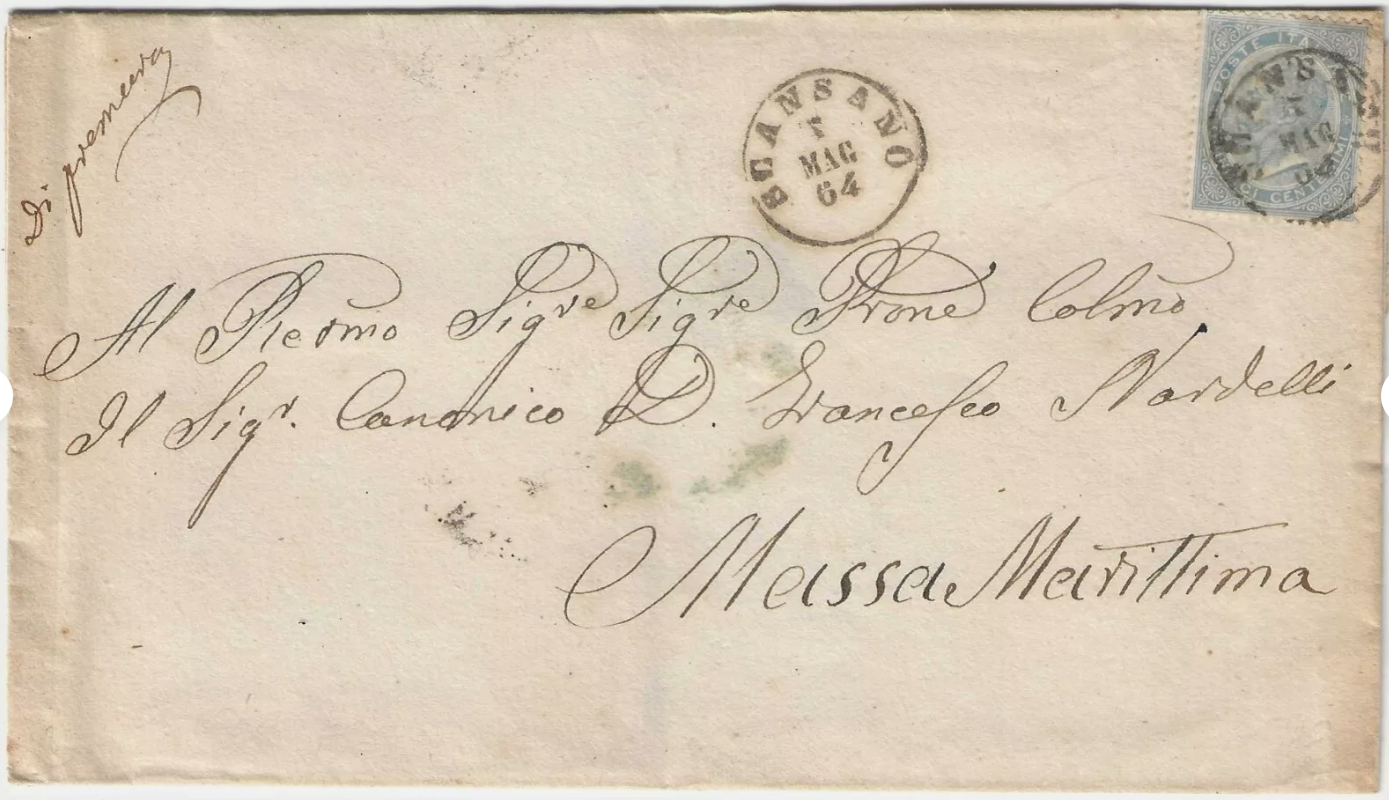 Di premura
SCANSANO
MAG
64
POSTE ITALIANE
DIECI CENTESIMI
MAG
Al Plermo Sigre Sigre Prone Colmo
Il Sigr. Canonico D. Francesco Nardelli
Massa Marittima